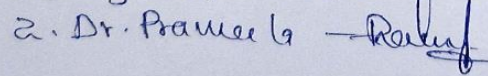 2. Dr. Prameela -